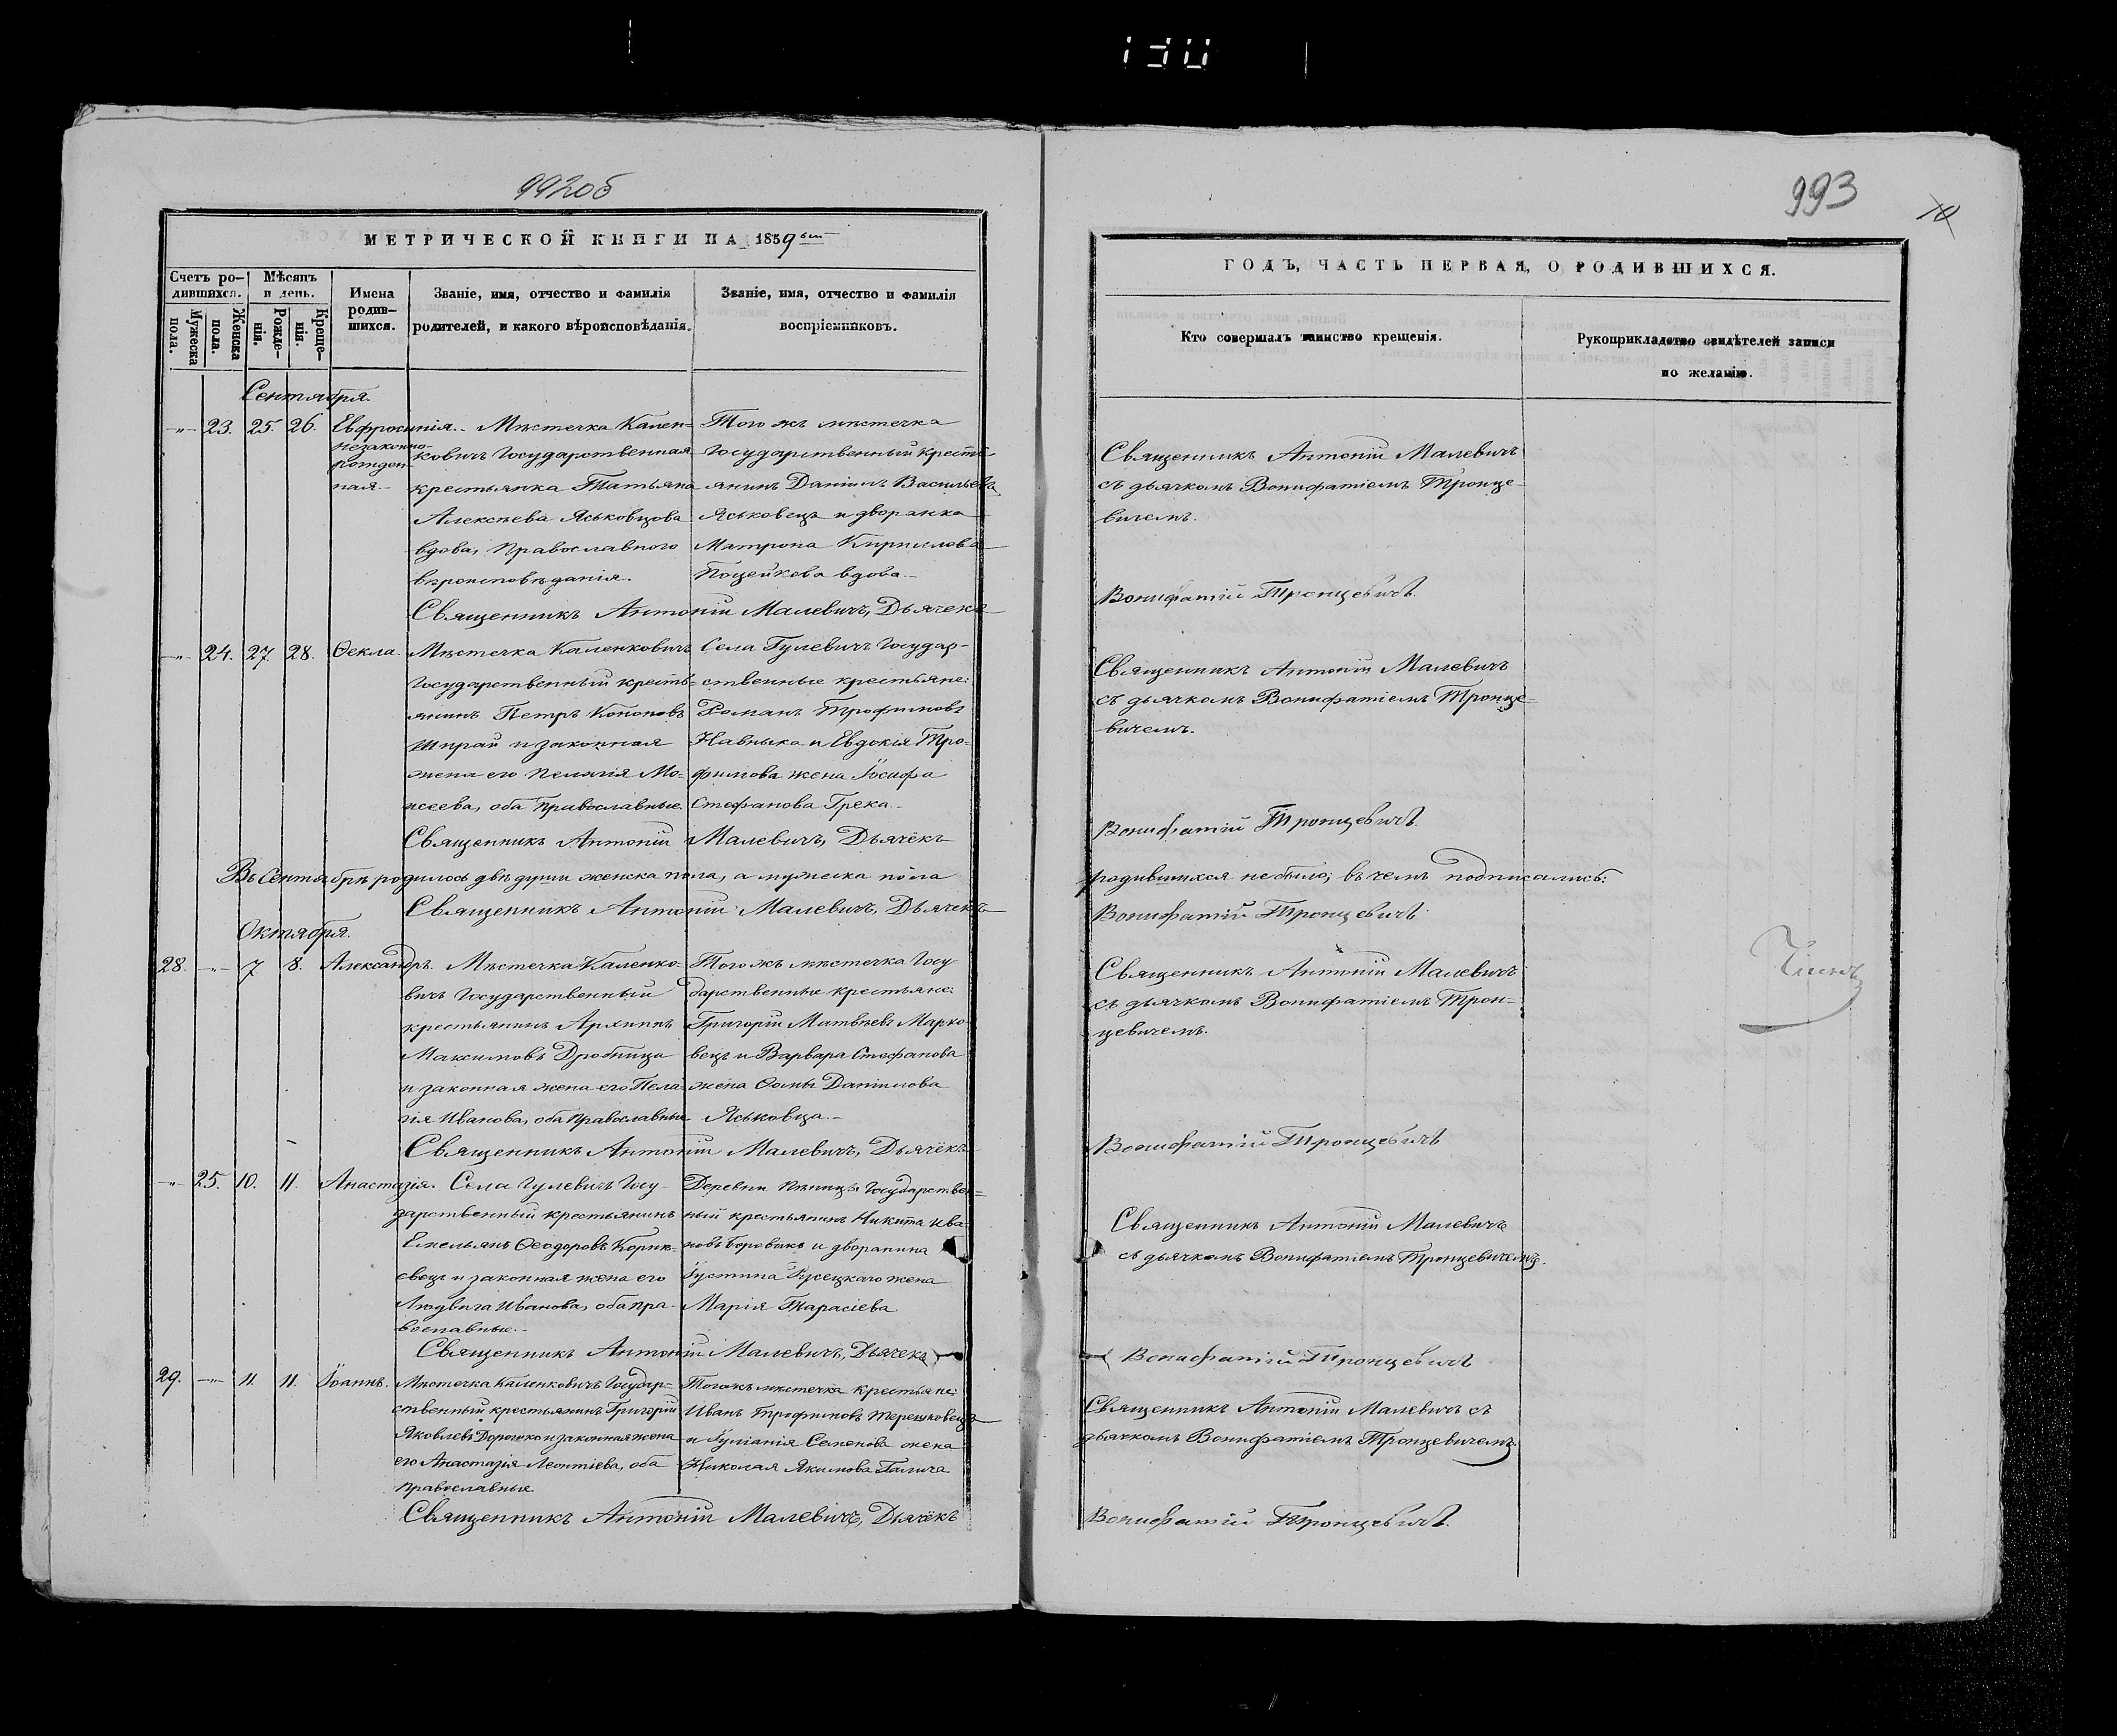 992об
МЕТРИЧЕСКОЙ КНИГИ НА 1859ый
Счетъ ро-
дившихся.
Мѣсяцъ
и день.
Мужеска
пола.
Женска
пола.
Рожде-
нія.
Креще-
нія.
Имена
родив-
шихся.
Званіе, имя, отчество и фамилія
родителей, и какого вѣроисповѣданія.
Званіе, имя, отчество и фамилія
воспріемниковъ.
Сентября.
-"- 23. 25. 26. Евфросинія.
незаконно-
рожден
ная.
Мѣстечка Кален-
ковичъ Государственная
крестьянка Татьяна
Алексѣева Яськовцова
вдова, православного
вѣроисповѣданія.
Того жъ мѣстечка
Государственный кресть-
янинъ Даніилъ Васильевъ
Яськовецъ и дворянка
Матрона Кириллова
Поцейкова вдова.
Священникъ Антоній Малевичъ, Дьячекъ
-"- 24. 27. 28. Ѳекла.
Мѣстечка Каленковичъ
Государственный кресть-
янинъ Петръ Кононовъ
Шпрай и законная
жена его Пелагія Мо-
исеева, оба православные.
Села Гулевичъ Государ-
ственные крестьяне:
Романъ Трофимовъ
Навныка и Евдокія Тро-
фимова жена Іосифа
Стефанова Грека.
Священникъ Антоній Малевичъ, Дьячёкъ
Въ Сентябрѣ родилось двѣ души женска пола, а мужеска пола
Священникъ Антоній Малевичъ, Дьячекъ
Октября.
28. -"- 7 8. Александръ.
Мѣстечка Каленко-
вичъ Государственный
крестьянинъ Архипъ
Максимовъ Дробница
и законная жена его Пела
гія Иванова, оба православные
Того жъ мѣстечка Госу
дарственные крестьяне:
Григорій Матвѣевъ Марко
вецъ и Варвара Стефанова
жена Ѳомы Даніилова
Яськовца.
Священникъ Антоній Малевичъ, Дьячёкъ
-"- 25. 10. 11. Анастазія.
Села Гулевичъ Госу-
дарственный крестьянинъ
Емельянъ Ѳеодоровъ Корне-
евецъ и законная жена его
Людвига Иванова, оба пра-
вославные.
Деревни Ненецъ Государствен-
ный крестьянинъ Никита Ива
новъ Боровикъ и дворянина
Густина Русецкаго жена
Марія Тарасіева
Священникъ Антоній Малевичъ, Дьячекъ
29. -"- 11. 11. Іоаннъ.
Мѣстечка Каленковичъ Государ-
ственный крестьянинъ Григорій
Яковлевъ Дорошко и законная жена
его Анастазія Леонтіева, оба
православные
Того жъ мѣстечка крестьяне:
Иванъ Трофимовъ Терешковецъ
и Іуліанія Семенова жена
Николая Якимова Галича
Священникъ Антоній Малевичъ, Дьячёкъ
993
10
ГОДЪ, ЧАСТЬ ПЕРВАЯ, О РОДИВШИХСЯ.
Кто совершалъ таинство крещенія.
Рукоприкладство свидѣтелей записи
по желанію.
Священникъ Антоній Малевичъ
съ дьячкомъ Вонифатіемъ Тронце-
вичемъ.
Вонифатій Тронцевичъ.
Священникъ Антоній Малевичъ
съ дьячкомъ Вонифатіемъ Тронце-
вичемъ.
Вонифатій Тронцевичъ.
родившихся не было; въ чемъ подписались:
Вонифатій Тронцевичъ
Священникъ Антоній Малевичъ
съ дьячкомъ Вонифатіемъ Трон-
цевичемъ.
Вонифатій Тронцевичъ
Священникъ Антоній Малевичъ
съ дьячкомъ Вонифатіемъ Тронцевичемъ.
Вонифатій Тронцевичъ
Священникъ Антоній Малевичъ съ
дьячкомъ Вонифатіемъ Тронцевичемъ.
Вонифатій Тронцевичъ.